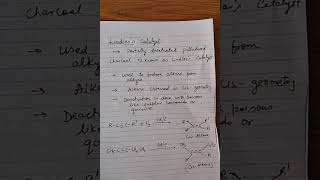 Lindlar's Catalyst
→ Partially deactivated palladised
charcoal is known as Lindlar's Catalyst
→ Used to produce alkene from
alkyne
→ Alkene obtained is Cis-geometry
→ Deactivation is done with poisons
like sulphur compounds or
quinoline
R-C≡C-R' + H₂ Pd/C
(Cis-Alkene)
Pd/C
(Cis-Alkene)
Charcoal
Catalyst
Used
from
alkyne
Cis-geometry
Deac
poisons
like
or